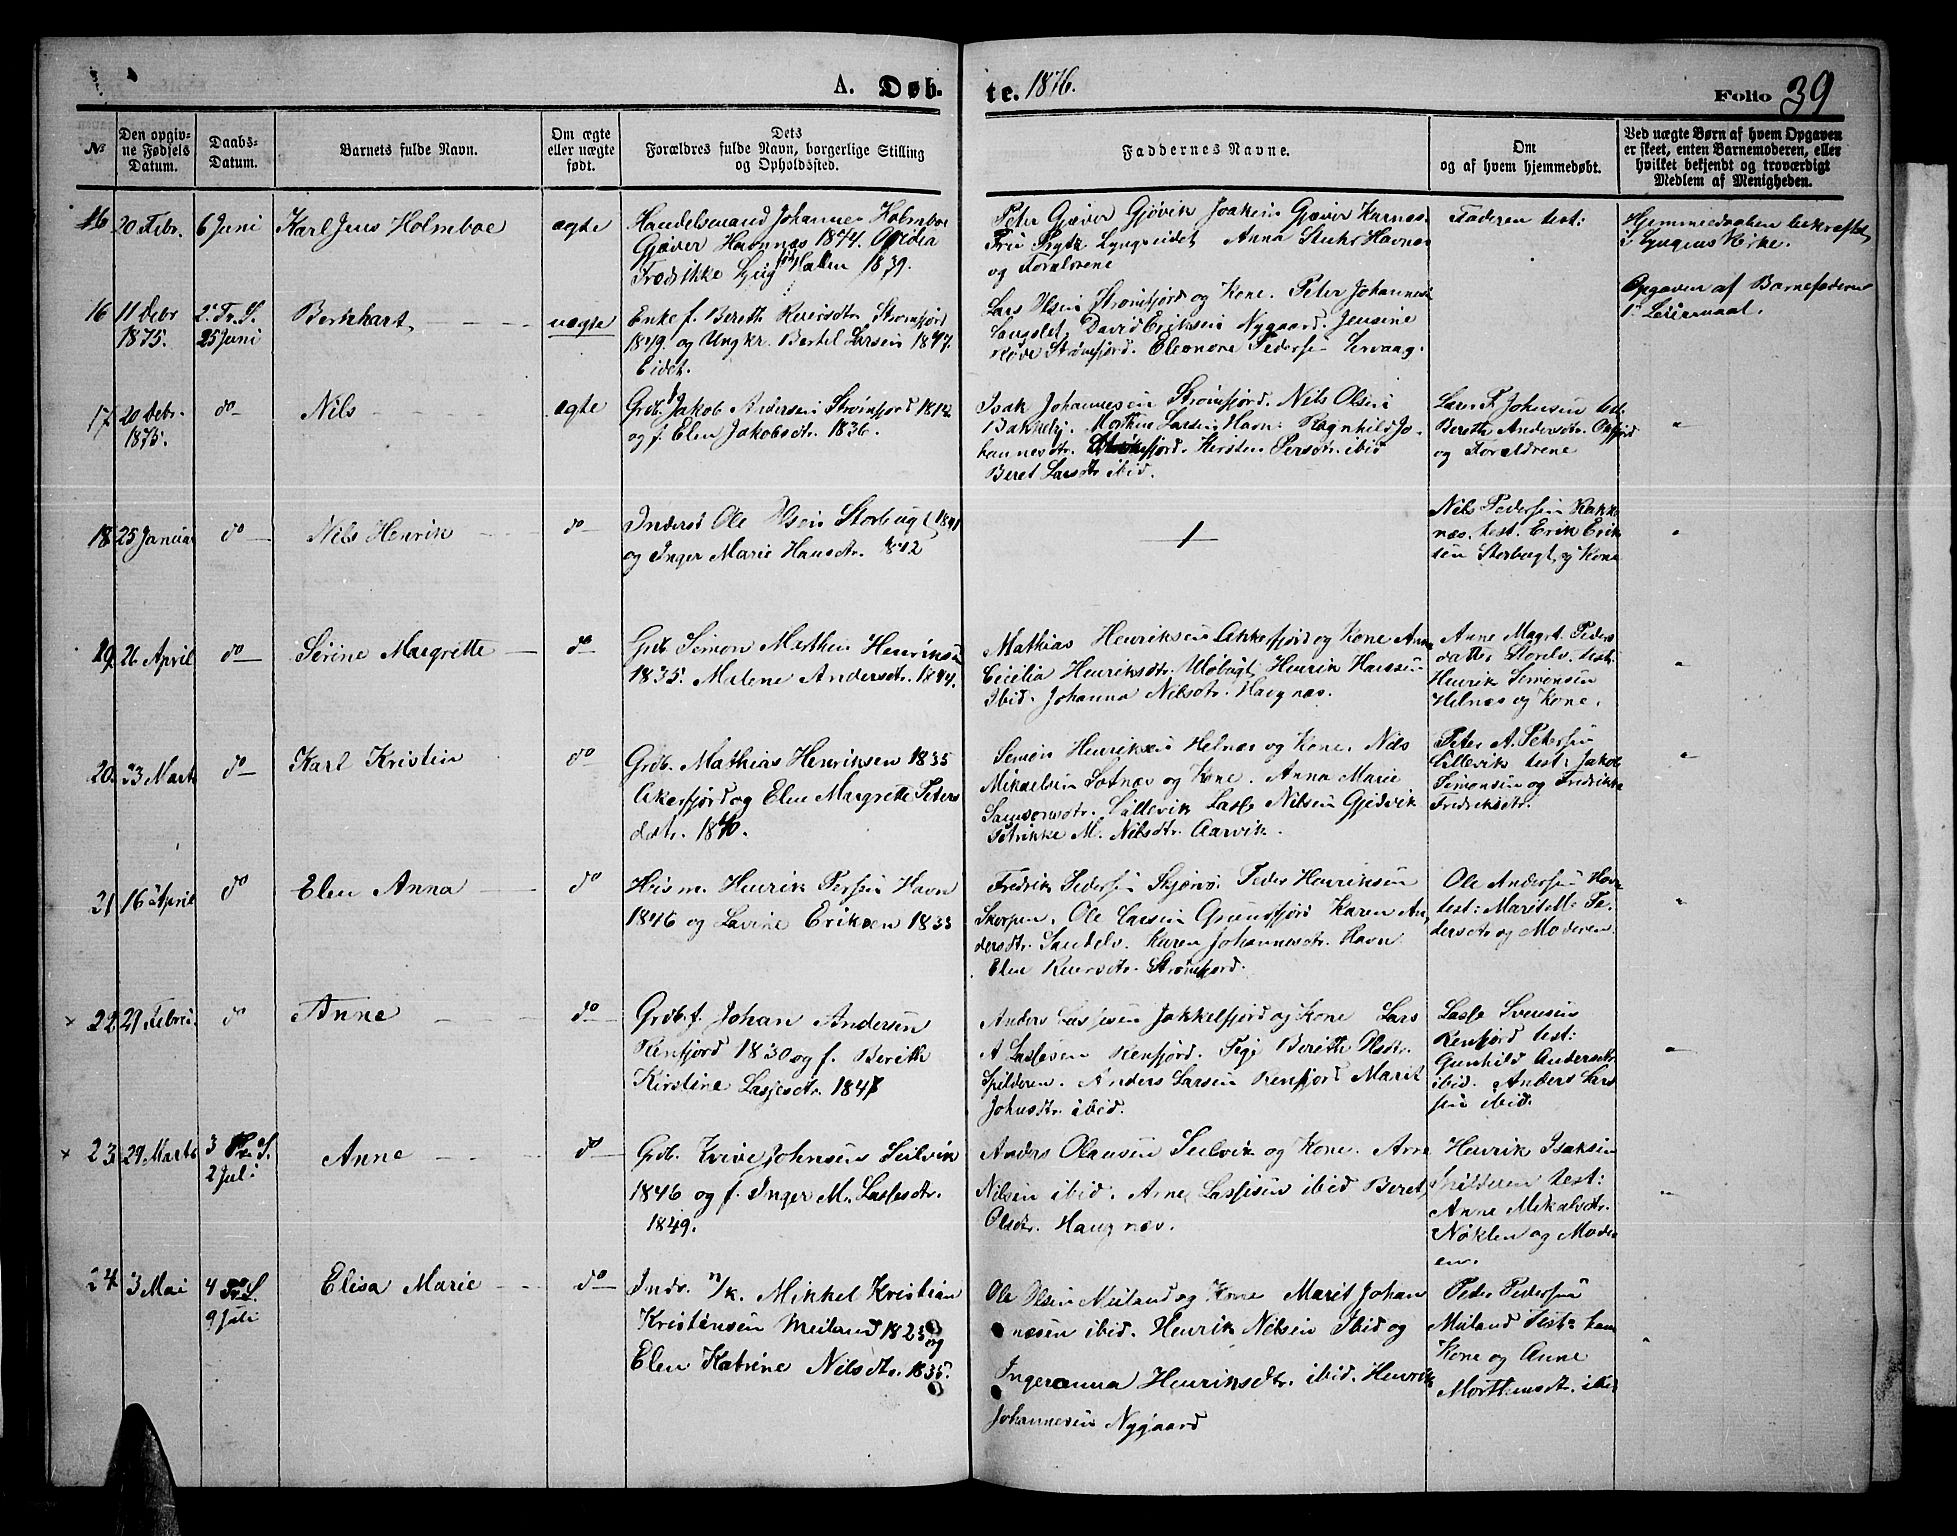 A. Døb-
te. 1876.
Folio 39
No
Den opgiv-
ne Fødsels
Datum.
Daabs-
Datum.
Barnets fulde Navn.
Om ægte
eller uægte
født.
Dets
Forældres fulde Navn, borgerlige Stilling
og Opholdssted.
Faddernes Navne.
Om
og af hvem hjemmedøbt.
Ved uægte Børn af hvem Opgaven
er skeet, enten Barnemoderen, eller
hvilket bekjendt og troværdigt
Medlem af Menigheden.
20 Febr.
6 Juni
Karl Jens Holmboe
ægte
Handelsmand Johannes Holmboe
Gjæver Havnnæs 1844. Ovidia
Fredrikke Lyng født Hallen 1839.
Peter Gjæver Gjøvik Joakim Gjæver Karnæs
Lyngseidet Anna Havnæs
og Forældrene
Faderen test:
Hjemmedaaben bekræftet
i Lyngens Kirke.
16
11 Debr
1875.
2. Tr. S.
25 Juni
Berkhart
uægte
Enke f. Bereth Reiersdtr. Strømfjord
1849 og Ungkr. Bertel Larsen 1847.
Eidet.
Lars Olsen Strømfjord og Kone. Peter Johannes
Langslet, David Eriksen Nygaard. Jensine
Strømfjord. Eleonore Pedersen
Opgaven af Barnefaderen
1ste Leiermaal.
17
20 Debr.
1875.
do
Nils
ægte
Grdb. Jakob Andersen Strømfjord 1812
og f. Elen Jakobsdtr. 1836.
Isak Johannesen Strømfjord. Nils Olsen
Bakkeby. Morthen Larsen Havn. Ragnhild Jo-
hannesdtr. Strømfjord. Kirsten Persdtr. ibid
Beret Larsdtr ibid.
Lars F. Johnsen test.
Bereth Andersdtr. Oxfjord
og Forældrene
"
18
25 Januar
do
Nils Henrik
do
Inderst Ole Olsen Storbugt 1841
og Inger Marie Hansdtr. 1842
Nils Pedersen Rakke
næs. test. Erik Erik
sen Storbugt og Kone
"
19.
26 April
do
Sørine Margrette
do
Grdb. Simon Mathen Henriksen
1835. Malene Andersdtr. 1844.
Mathias Henriksen Akkefjord og Kone Anne
Cecilia Henriksdtr. Uløbugt Henrik Hansen
Ibid. Johanna Nilsdtr. Haugnæs.
Anne Magrt. Peders
datter Storelv. test.
Henrik Simonsen
Helnæs og Kone.
"
20.
23 Marts
do
Karl Kristin
do
Grdb. Mathias Henriksen 1835
Akerfjord og Elen Margrette Peters
datr. 1840.
Simon Henriksen Helnæs og Kone. Nils
Mikkelsen Sotnæs og Kone. Anna Marie
Samsonsdtr. Lillevik Lasse Nilsen Gjedvik
Petrikke M. Nilsdtr. Aarvik.
Peter A. Petersen
Lillevik test: Jakob
Simonsen og Fredrikke
Fredriksdtr.
"
21
16 April
do
Elen Anna
do
Husm. Henrik Persen Havn
1846 og Lavine Eriksen 1835
Fredrik Pedersen Skjærvø. Peder Henriksen
Skorpen. Ole Larsen Grundfjord Karen An-
dersdtr. Sandelv. Karen Johannesdtr. Havn
Elen Reiersdtr. Strømfjord.
Ole Andersen Havn
test: Marit M. Pe-
dersdtr og Moderen
"
x 22
21 Febru.
do
Anne
do
Grdb. f. Johan Andersen
Renfjord 1830 og f. Berith
Kirstine Lassesdtr. 1847
Anders Lassesen Jøkkelfjord og Kone Lars
A Lassesen Renfjord. Pige Bereth Olsdtr.
Spilderen. Anders Larsen Renfjord Marit
Johnsdtr. ibid.
Lasse Svensen
Renfjord test:
Gunhild Andersdtr.
ibid. Anders Lar-
sen ibid.
"
x 23
29 Marts
3 Tr. S.
2 Juli
Anne
do
Grdb. Kvive Johnsen Seilvik
1846 og f. Inger M. Lassesdtr.
1849.
Anders Olausen Seilvik og Kone. Arne
Nilsen ibid. Arne Lassesen ibid Beret
Olsdtr. Haugnæs.
Henrik Isaksen
Spilderen test:
Anne Mikalsdtr.
Nøklen og Moder-
en.
"
24
3 Mai
4 Tr. S.
9 Juli
Elisa Marie
do
Indr. n/k. Mikkel Kristian
Kristensen Meiland 1825 og
Elen Katrine Nilsdtr. 1835.
Ole Olsen Meiland og Kone Marit Johan
nesen ibid. Henrik Nilsen Ibid og
Ingeranna Henriksdtr. ibid. Henrik
Johannesen Nygaard
Peder Pedersen
Meiland Test: hans
Kone og Anne
Morthensdtr. ibid
"